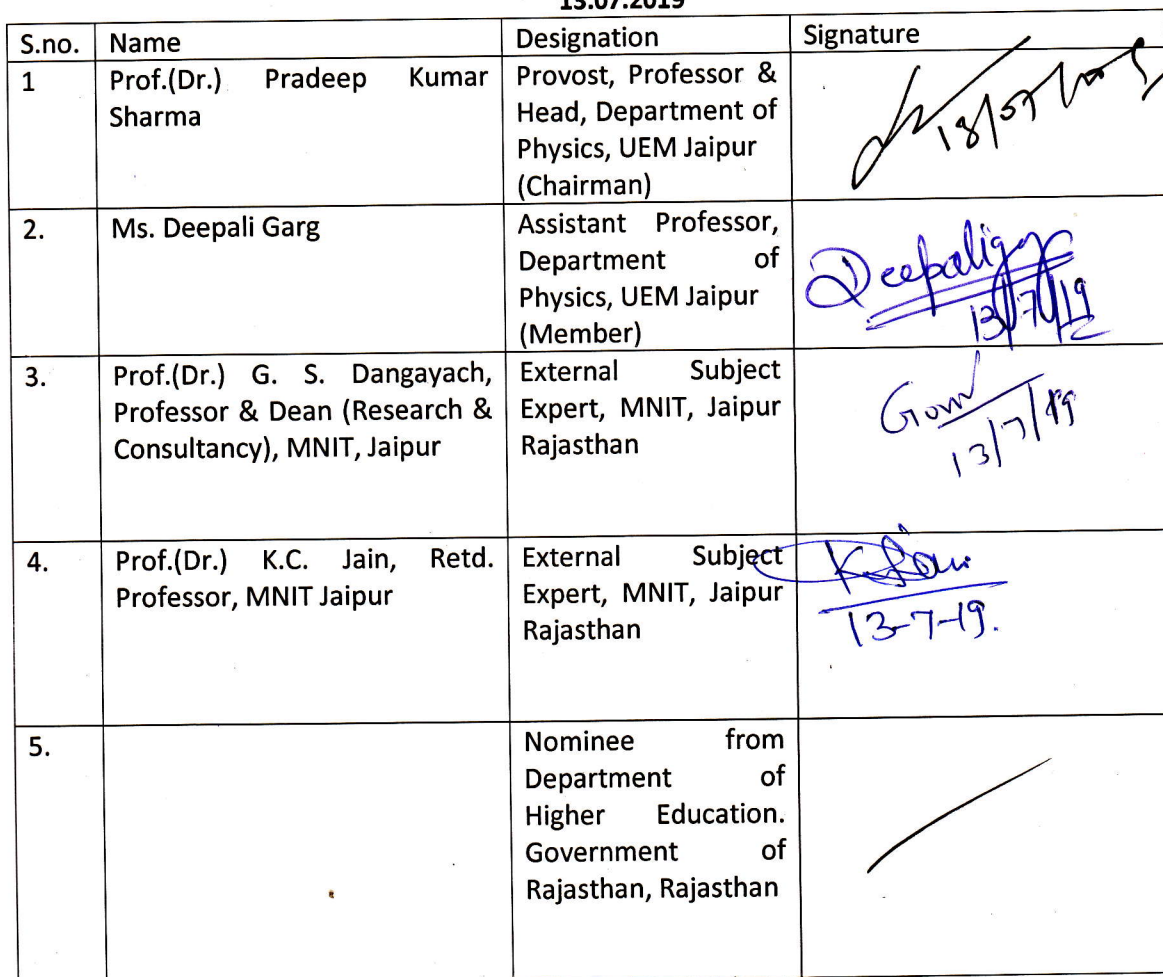 13.07.2019
S.no. Name Designation Signature
1 Prof.(Dr.) Pradeep Kumar Sharma
Provost, Professor &
Head, Department of
Physics, UEM Jaipur
(Chairman)
2. Ms. Deepali Garg
Assistant Professor,
Department of
Physics, UEM Jaipur
(Member)
Deepali
13/7/19
3. Prof.(Dr.) G. S. Dangayach,
Professor & Dean (Research &
Consultancy), MNIT, Jaipur
External Subject
Expert, MNIT, Jaipur
Rajasthan
13/7/19
4. Prof.(Dr.) K.C. Jain, Retd.
Professor, MNIT Jaipur
External Subject
Expert, MNIT, Jaipur
Rajasthan
13-7-19.
5.
Nominee from
Department of
Higher Education.
Government of
Rajasthan, Rajasthan